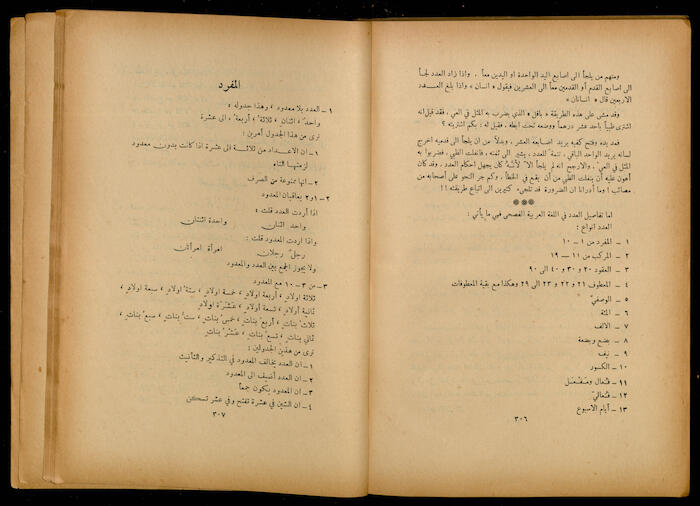 ومنهم من يلجأ الى اصابع اليد الواحدة او اليدين معاً . واذا زاد العدد لجأ
الى اصابع القدم أو القدمين معاً الى العشرين فيقول « انسان » واذا بلغ العدد
الاربعين قال « انسانان »
وقد مشى على هذه الطريقة « باقل » الذي يضرب به المثل في العي ، فقد قيل انه
اشترى ظبياً بأحد عشر درهماً ووضعه تحت ابطه . فقيل له : بكم اشتريته ؟
فمد يده وفتح كفيه يريد اصابعه العشر . وبدلاً من ان يلجأ الى قدميه اخرج
لسانه يريد الواحد الباقي ، تتمة للعدد ، يشير الى ثمنه . فانفلت الظبي . فضربوا به
المثل في العي . والارجح انه لم يلجأ الا لأنه كان يجهل احكام العدد . وقد كان
أهون عليه أن ينفلت الظبي من أن يقع في الخطأ . وكم جر النحو على أصحابه من
مصائب ! وما أدرانا ان الضرورة قد تلجىء كثيرين الى اتباع طريقته !!
***
اما تفاصيل العدد في اللغة العربية الفصحى فهي ما يأتي :
العدد انواع :
١ – المفرد من ١ – ١٠
٢ – المركب من ١١ – ١٩
٣ – العقود ٢٠ و ٣٠ و ٤٠ الى ٩٠
٤ – المعطوف ٢١ و ٢٢ و ٢٣ الى ٢٩ وهكذا مع بقية المعطوفات
٥ – الوصفي
٦ – المئة
٧ – الالف
٨ – بضع وبضعة
٩ – نيف
١٠ – الكسور
١١ – فُعال ومَفْعَل
١٢ – فُعاليّ
١٣ – أيام الاسبوع
٣٠٦
المفرد
١ – العدد بلا معدود ، وهذا جدوله :
واحد ، اثنان ، ثلاثة ، أربعة ، الى عشرة
نرى من هذا الجدول أمرين :
١ – ان الاعداد من ثلاثة الى عشرة اذا كانت بدون معدود
لزمتها التاء
٢ – انها ممنوعة من الصرف
٢ – ١ و٢ يعاقبان المعدود
اذا أردت العدد قلت :
واحد اثنان واحدة اثنتان
واذا اردت المعدود قلت :
رجلٌ رجلان امرأة امرأتان
ولا يجوز الجمع بين العدد والمعدود
٣ – من ٣ – ١٠ مع المعدود
ثلاثة اولادٍ ، أربعة اولادٍ ، خمسة اولادٍ ، ستة اولادٍ ، سبعة اولادٍ ،
ثمانية أولادٍ ، تسعة أولادٍ ، عَشَرَة اولادٍ
ثلاث بناتٍ ، أربعُ بناتٍ ، خمسُ بناتٍ ، ستُ بناتٍ ، سبعُ بناتٍ ،
ثماني بناتٍ ، تسعُ بناتٍ ، عَشْرُ بناتٍ
نرى من هذين الجدولين :
١ – ان العدد يخالف المعدود في التذكير والتأنيث
٢ – ان العدد أضيف الى المعدود
٣ – ان المعدود يكون جمعاً
٤ – ان الشين في عشرة تفتح وفي عشر تسكن
٣٠٧